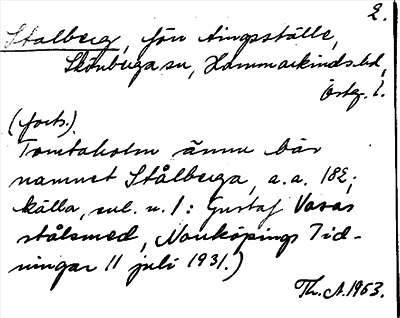 2.
Stålberg, förr tingsställe,
Skönberga sn, Hammarkinds hd,
Östg. l.
(forts.)
Tomtaholm ännu bär
namnet Stålberga, a.a. 182;
källa, enl. n. 1: Gustaf Vasas
stålsmed, Norrköpings Tid-
ningar 11 juli 1931.)
Th. A. 1953.